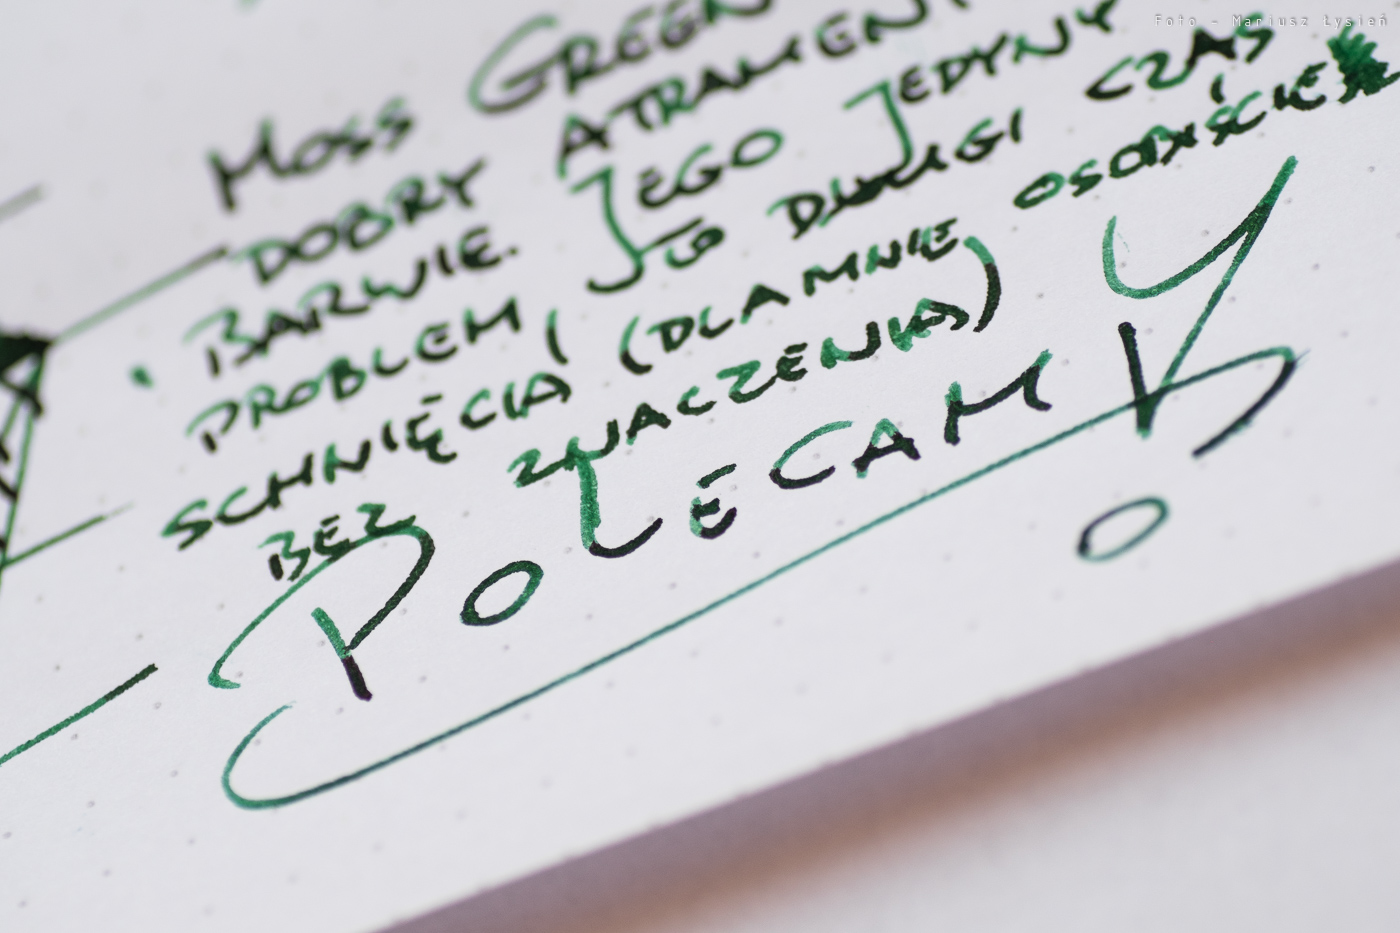 Foto - Mariusz Łysień
MOSS GREEN
DOBRY ATRAMENT
BARWIE. JEGO JEDYNY
PROBLEM, TO DŁUGI CZAS
SCHNIĘCIA (DLA MNIE OSOBIŚCIE
BEZ ZNACZENIA)
POLECAM!